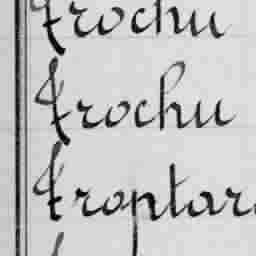 Trochu
Trochu
Troptar